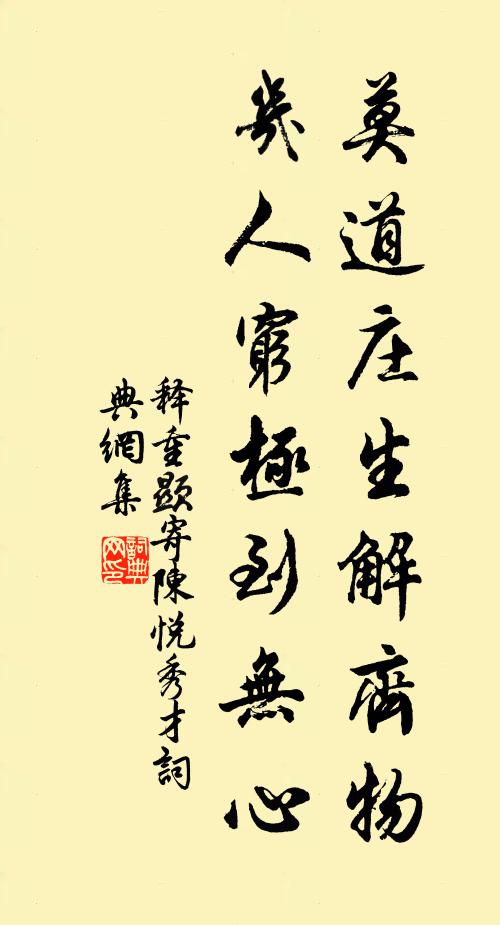 莫道庄生解齊物
幾人窮極到無心
释重顯寄陳悅秀才詞
典網集
詞典
网印